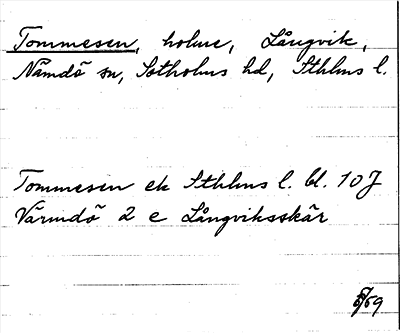 Tommesen, holme, Långvik,
Nämdö sn, Sotholms hd, Sthlms l.
Tommesen ek Sthlms l. bl. 107
Värmdö 2 e Långviksskär